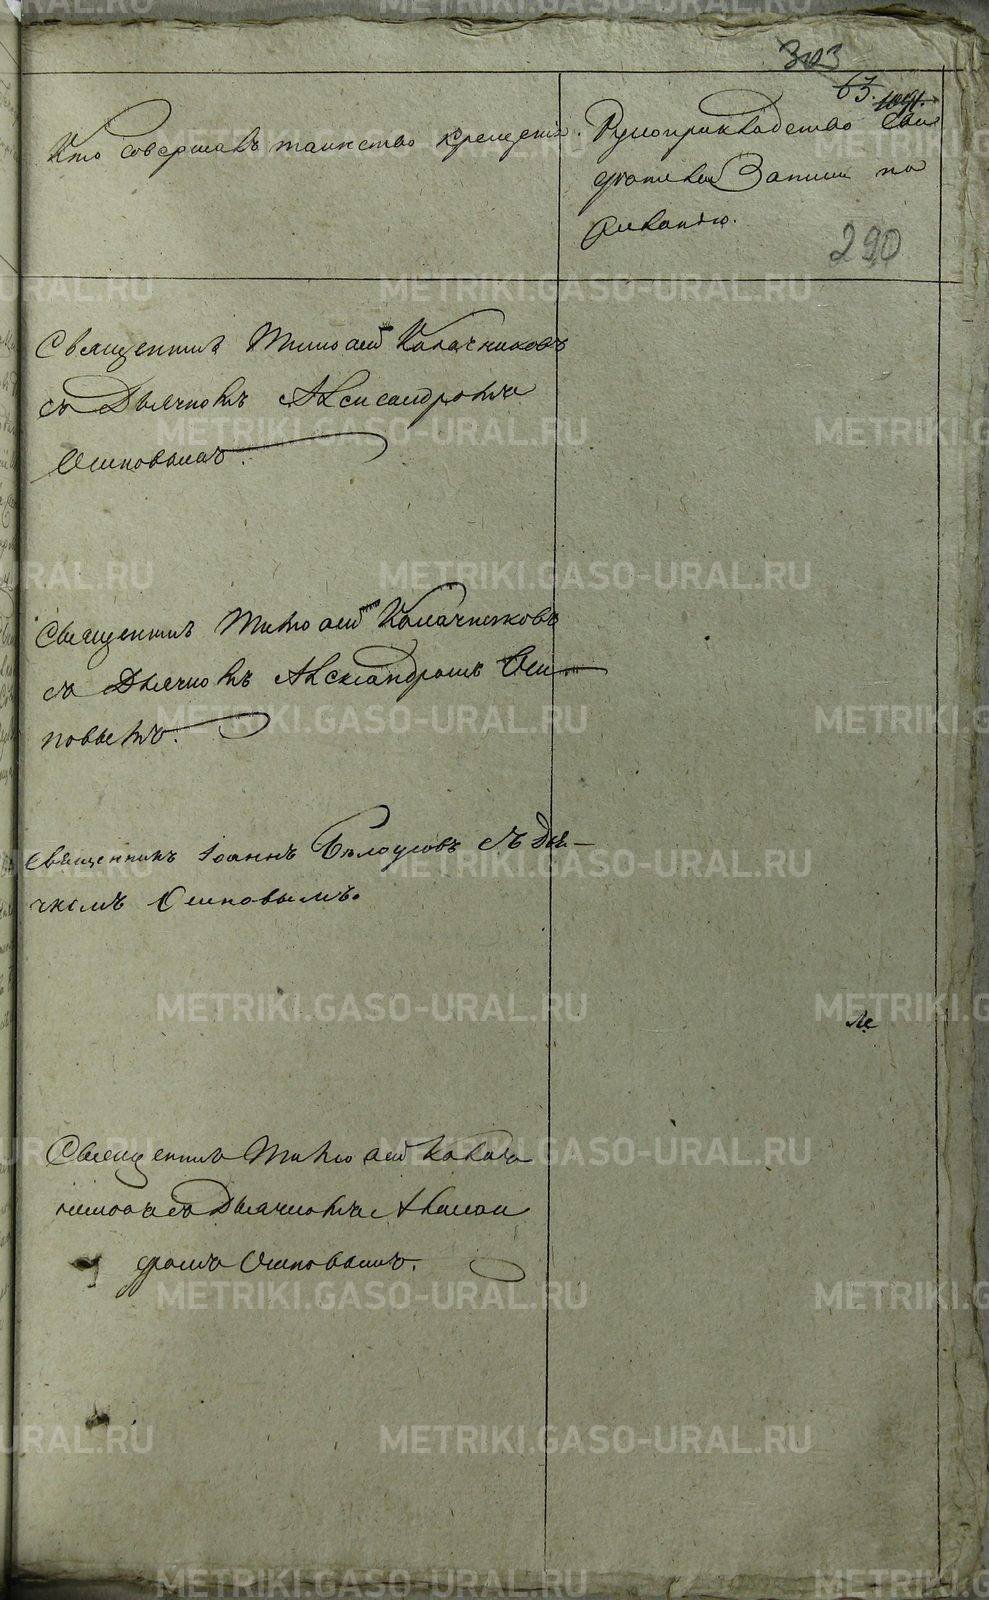 303
63. 1091.
Кто совершалъ таинство крещенія.
Рукоприкладство сви
дѣтелей Записи по
желанію.
290
Священникъ Тимоѳей Калачниковъ
съ Дьячкомъ Александромъ
Осиповымъ.
Священникъ Тимоѳей Калачниковъ
съ Дьячкомъ Александромъ Оси
повымъ.
Священникъ Іоаннъ Бѣлоусовъ съ дья-
чкомъ Осиповымъ.
Священникъ Тимоѳей Калач
никовъ съ Дьячкомъ Алексан
дромъ Осиповымъ.
METRIKI.GASO-URAL.RU